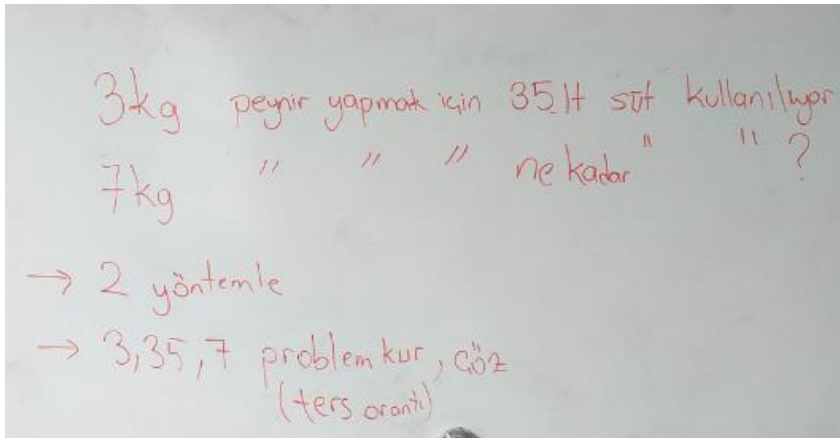 3kg peynir yapmak için 35 lt süt kullanılıyor
7kg " " " ne kadar " " ?
→ 2 yöntemle
→ 3,35,7 problem kur, çöz
(ters orantı)